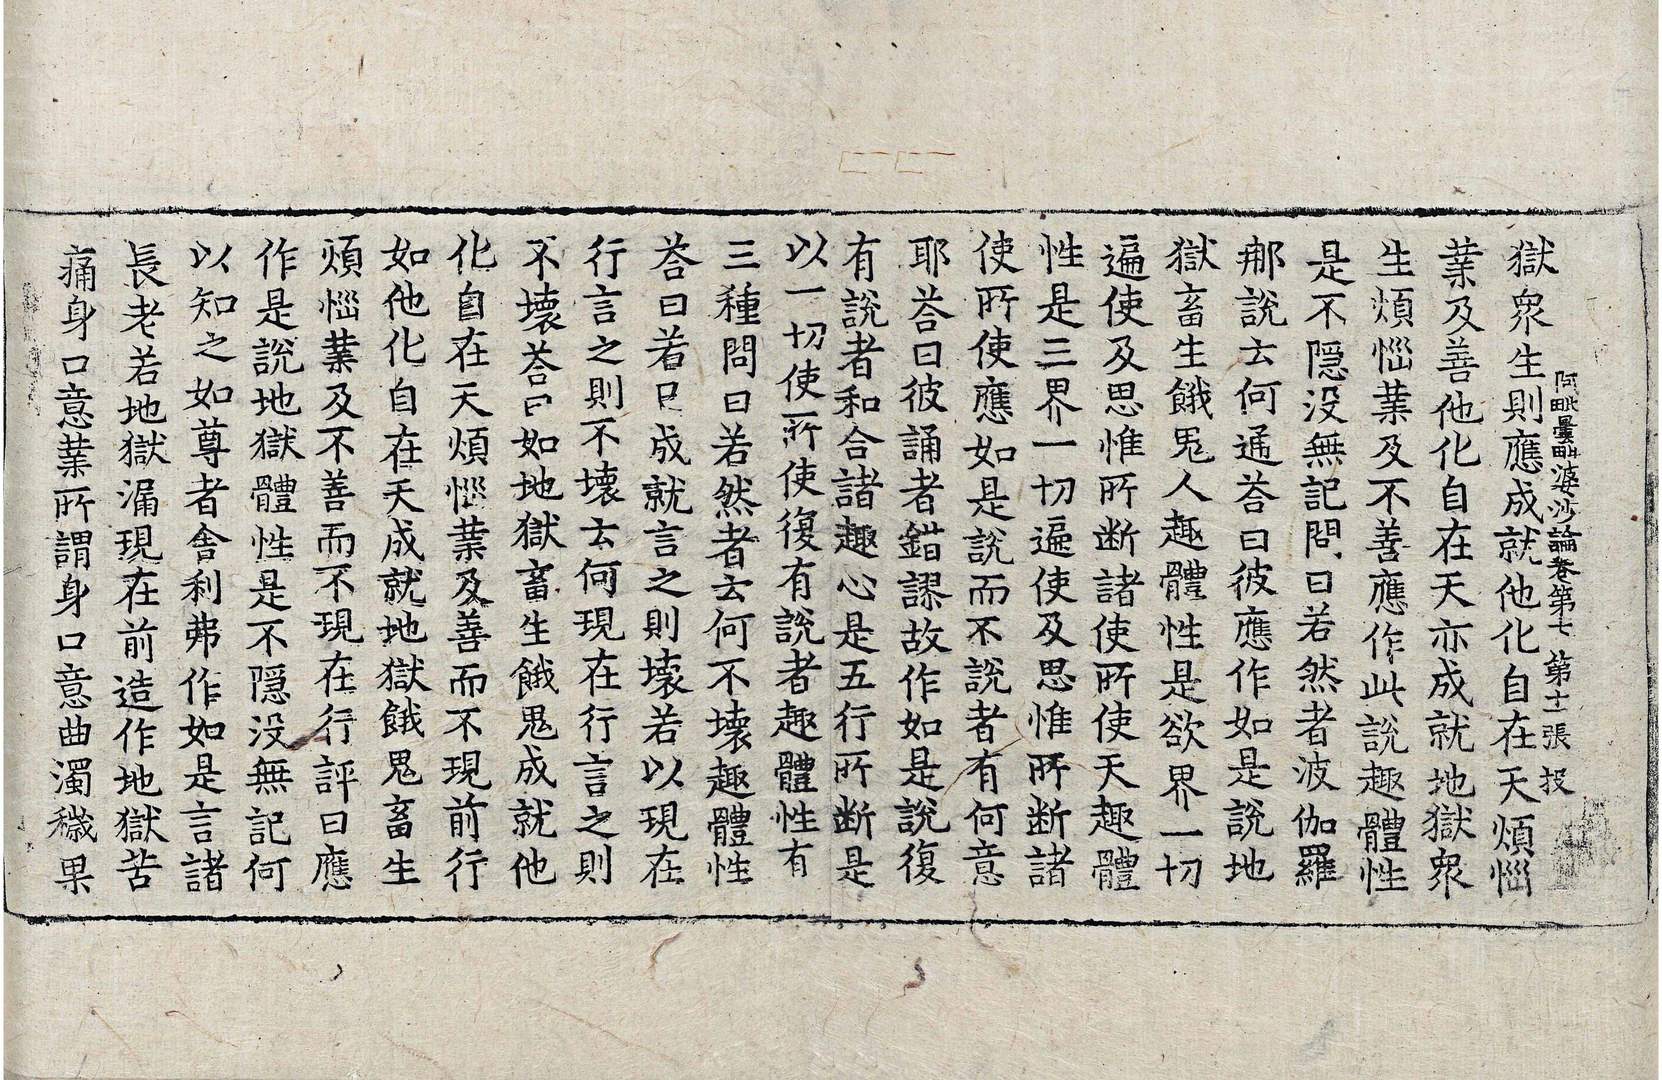 阿毗曇毗婆沙論卷第七 第十二張 投
獄衆生則應成就他化自在天煩惱
業及善他化自在天亦成就地獄衆
生煩惱業及不善應作此說趣體性
是不隱没無記問曰若然者波伽羅
那說云何通荅曰彼應作如是說地
獄畜生餓鬼人趣體性是欲界一切
遍使及思惟所断諸使所使天趣體
性是三界一切遍使及思惟所断諸
使所使應如是說而不說者有何意
耶荅曰彼誦者錯謬故作如是說復
有說者和合諸趣心是五行所断是
以一切使所使復有說者趣體性有
三種問曰若然者云何不壞趣體性
荅曰若㠯成就言之則壞若以現在
行言之則不壞云何現在行言之則
不壞荅曰如地獄畜生餓鬼成就他
化自在天煩惱業及善而不現前行
如他化自在天成就地獄餓鬼畜生
煩惱業及不善而不現在行評曰應
作是說地獄體性是不隱没無記何
以知之如尊者舍利弗作如是言諸
長老若地獄漏現在前造作地獄苦
痛身口意業所謂身口意曲濁穢果